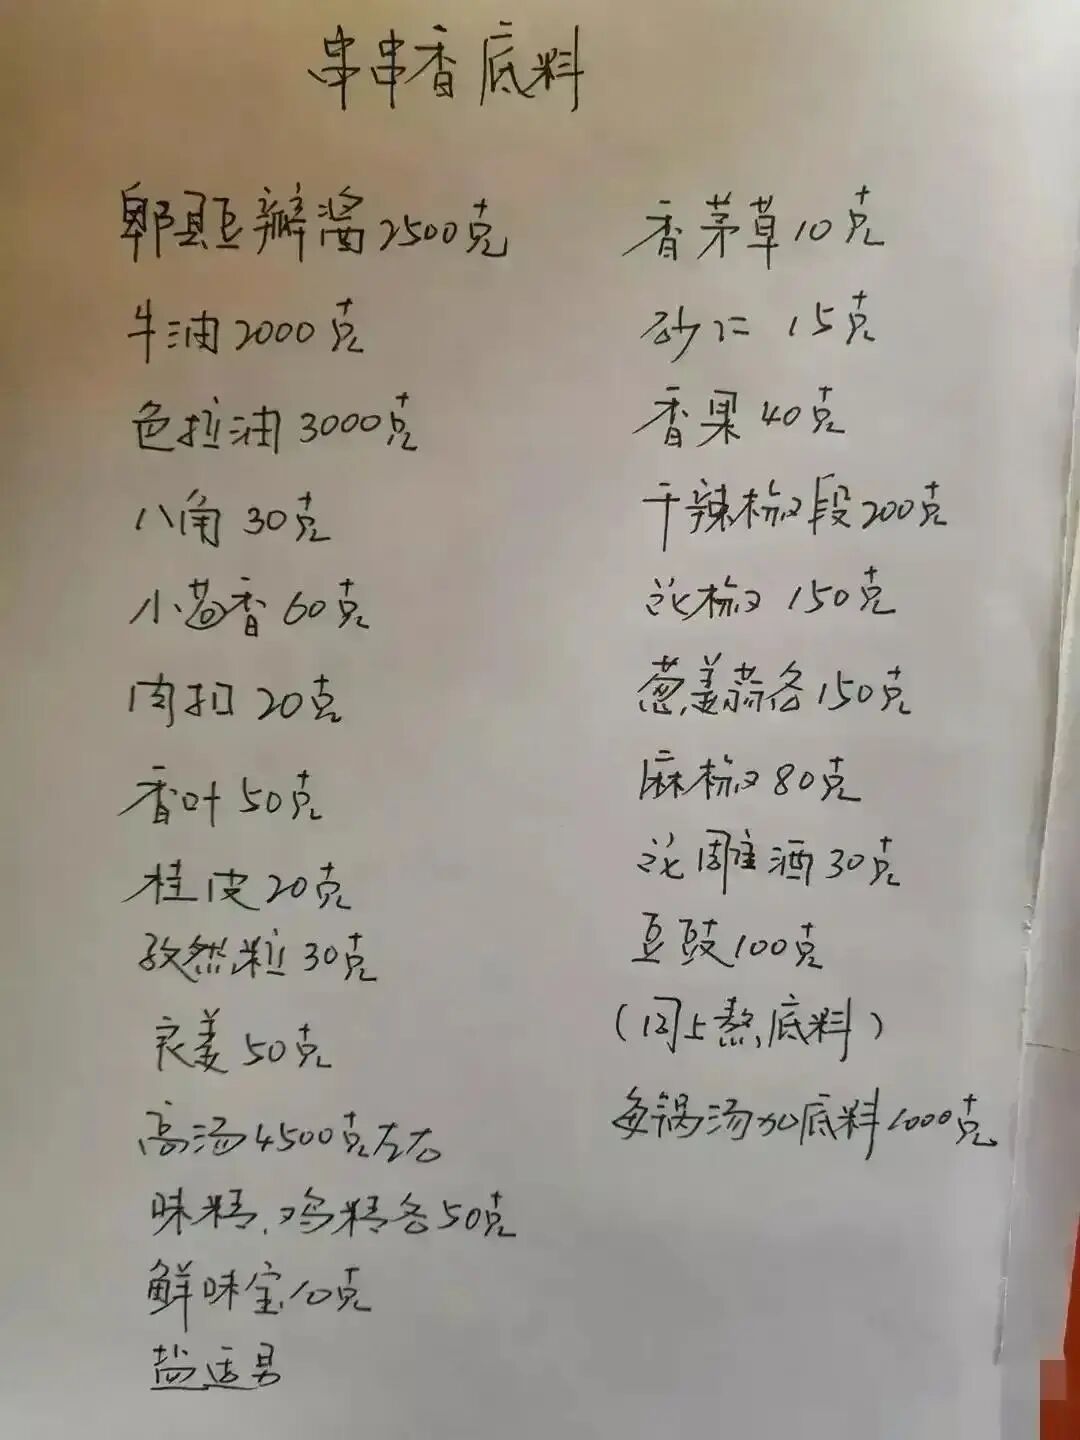 串串香底料
郫县豆瓣酱2500克
牛油2000克
色拉油3000克
八角30克
小茴香60克
肉扣20克
香叶50克
桂皮20克
孜然粒30克
良姜50克
高汤4500克左右
味精、鸡精各50克
鲜味宝10克
盐适男
香茅草10克
砂仁 15克
香果40克
干辣椒段200克
花椒 150克
葱姜蒜各150克
麻椒80克
花雕酒30克
豆豉100克
(同上熬底料)
每锅汤加底料1000克